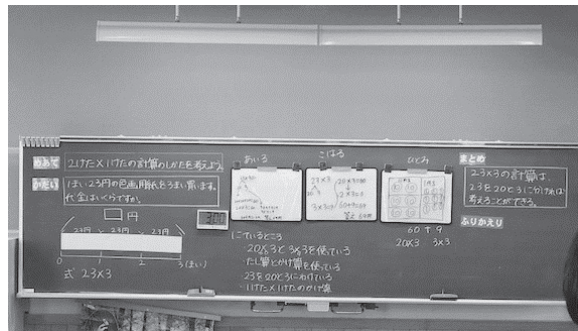 めあて
2けた×1けたの計算のしかたを考えよう。
かだい
1まい23円の色画用紙を3まい買います。
代金はいくらですか。
□円
23円 23円 23円
0 1 2 3(まい)
式 23×3
あいる
こはる
ひとみ
23×3
3×3=9
60+9=69
にているところ
・20×3と3×3を使っている
・たし算とかけ算を使っている
・23を20と3にわけている
・1けた×1けたのかけ算
60+9
20×3 3×3
まとめ
23×3の計算は、
23を20と3に分ければ
考えることができる。
ふりかえり